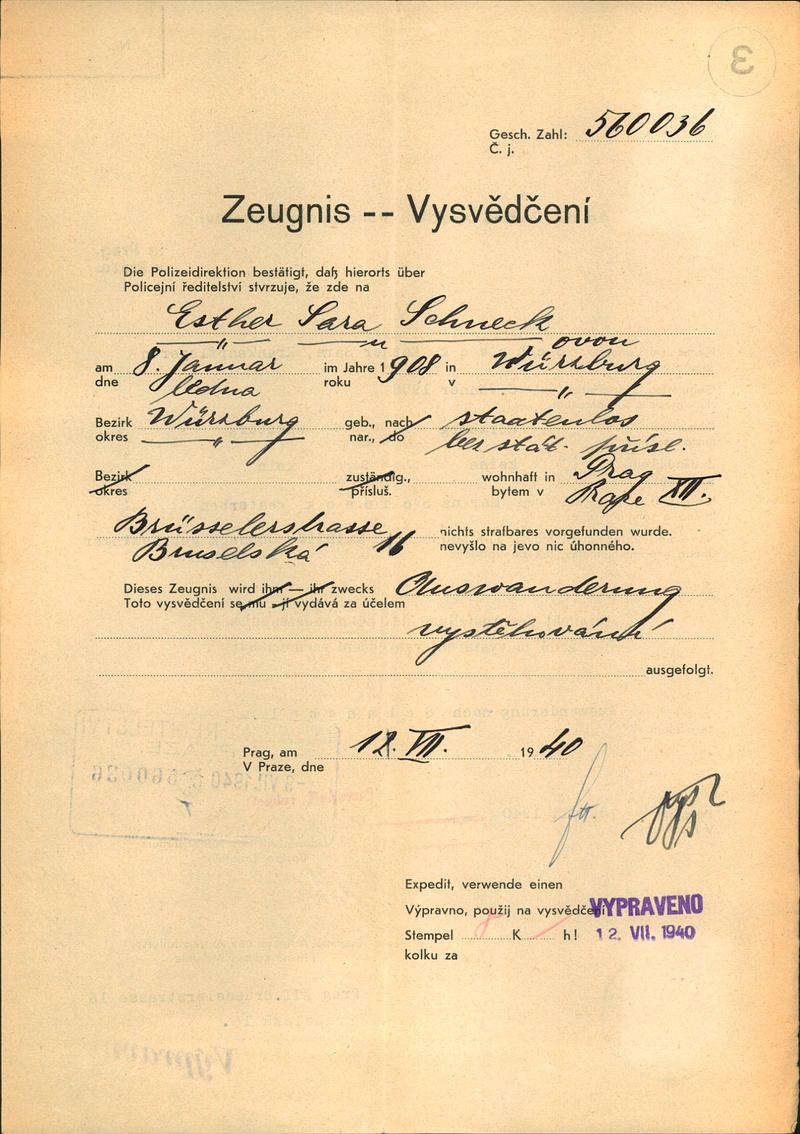 3
Gesch. Zahl: 560036
Č. j.
Zeugnis -- Vysvědčení
Die Polizeidirektion bestätigt, daß hierorts über
Policejní ředitelství stvrzuje, že zde na
Esther Sara Schneck
〃 〃 ovou
am 8. Januar im Jahre 1908 in Würzburg
dne ledna roku v 〃
Bezirk Würzburg geb., nach staatenlos
okres 〃 nar., do bez stát. přísl.
Bezirk zuständig., wohnhaft in Prag
okres přísluš. bytem v Praze XII.
Brüsselerstrasse nichts strafbares vorgefunden wurde.
Bruselská 16 nevyšlo na jevo nic úhonného.
Dieses Zeugnis wird ihm — ihr zwecks Auswanderung
Toto vysvědčení se mu - jí vydává za účelem
vystěhování
ausgefolgt.
Prag, am 12. VII. 1940
V Praze, dne
Expedit, verwende einen
Výpravno, použij na vysvědčení VYPRAVENO
Stempel 8 K h! 12. VII. 1940
kolku za